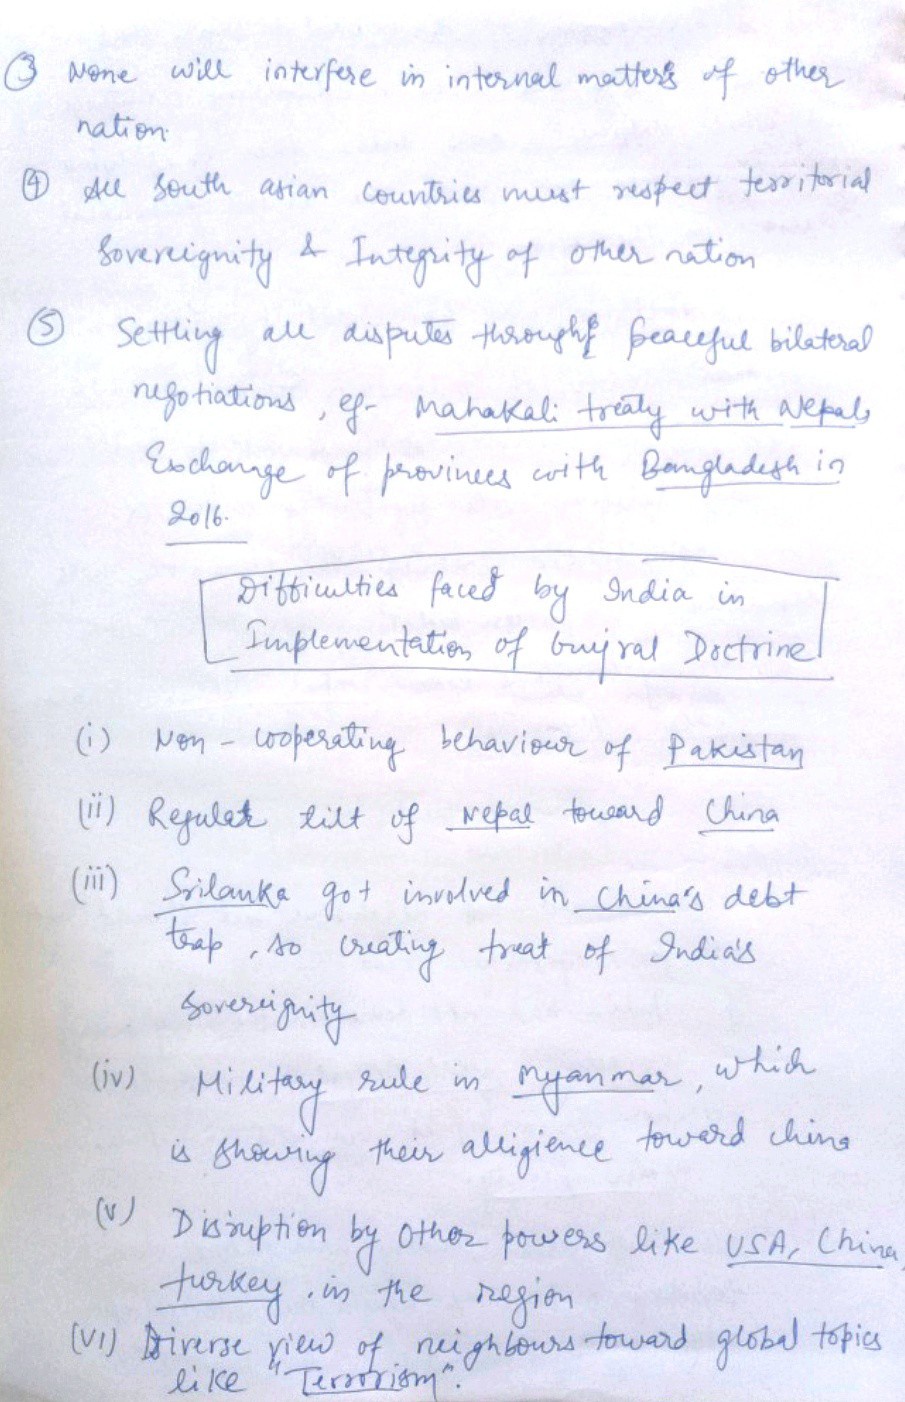 ③ None will interfere in internal matters of other
nation.
④ All South asian countries must respect territorial
Sovereignity & Integrity of other nation
⑤ Settling all disputes through peaceful bilateral
negotiations, eg- Mahakali treaty with Nepal,
Exchange of provinces with Bangladesh in
2016.
Difficulties faced by India in
Implementation of Gujral Doctrine
(i) Non-cooperating behaviour of Pakistan
(ii) Regular tilt of Nepal toward China
(iii) Srilanka got involved in China's debt
trap, so creating treat of India's
sovereignity
(iv) Military rule in Myanmar, which
is showing their alligience toward china
(v) Disruption by other powers like USA, China,
turkey. in the region
(VI) Diverse view of neighbours toward global topics
like "Terrorism".